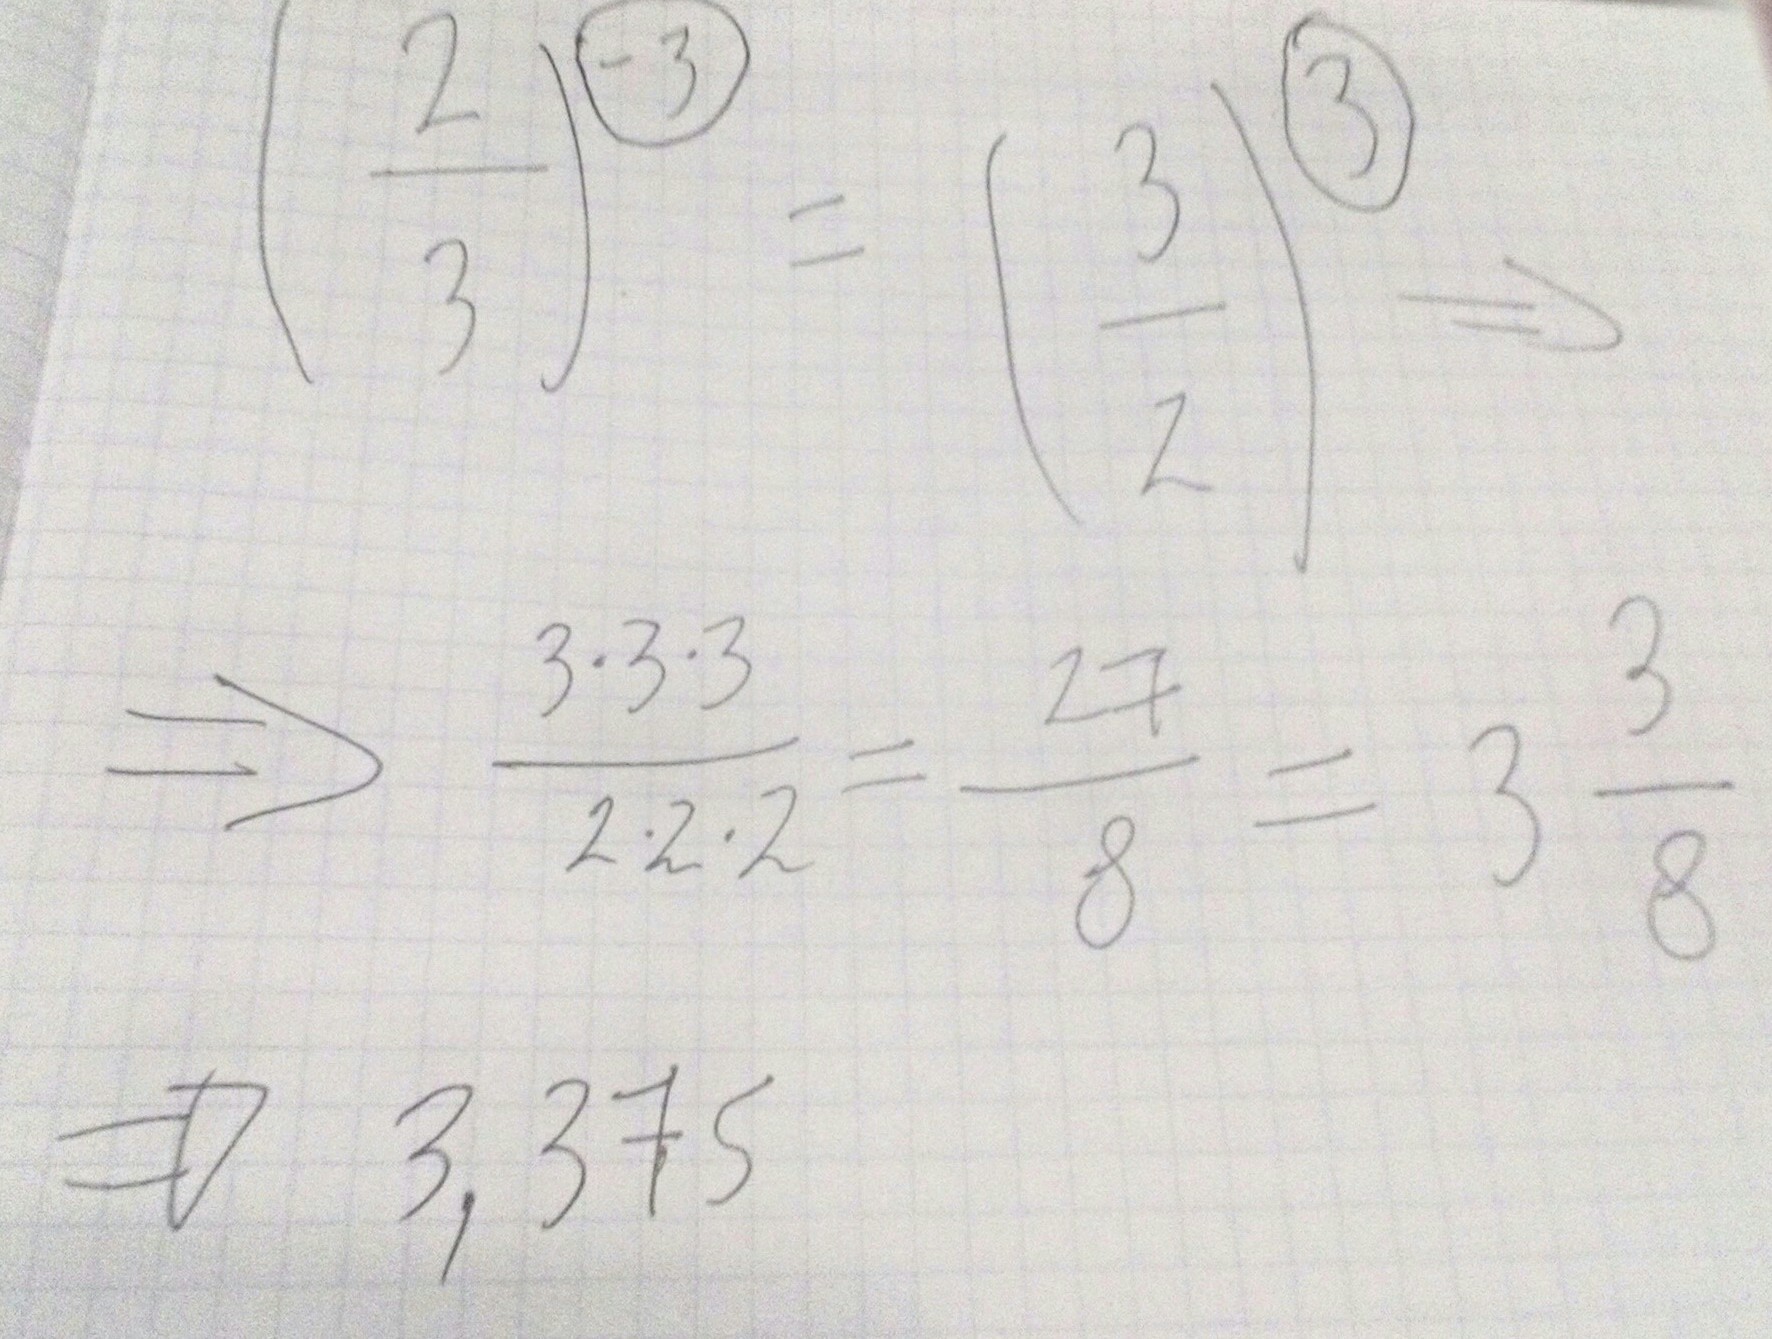 (2/3)^-3 = (3/2)^3 ⇒
⇒ 3·3·3/2·2·2 = 27/8 = 3 3/8
⇒ 3,375